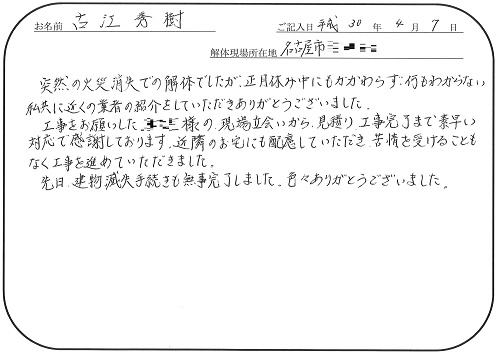 お名前 古江秀樹 ご記入日 平成30年4月7日
解体現場所在地 名古屋市
突然の火災消失での解体でしたが、正月休み中にもかかわらず、何もわからない
私共に近くの業者の紹介をしていただきありがとうございました。
工事をお願いした 様の現場立会いから、見積り、工事完了まで素早い
対応で感謝しております。近隣のお宅にも配慮していただき、苦情を受けることも
なく工事を進めていただきました。
先日、建物滅失手続きも無事完了しました。色々ありがとうございました。